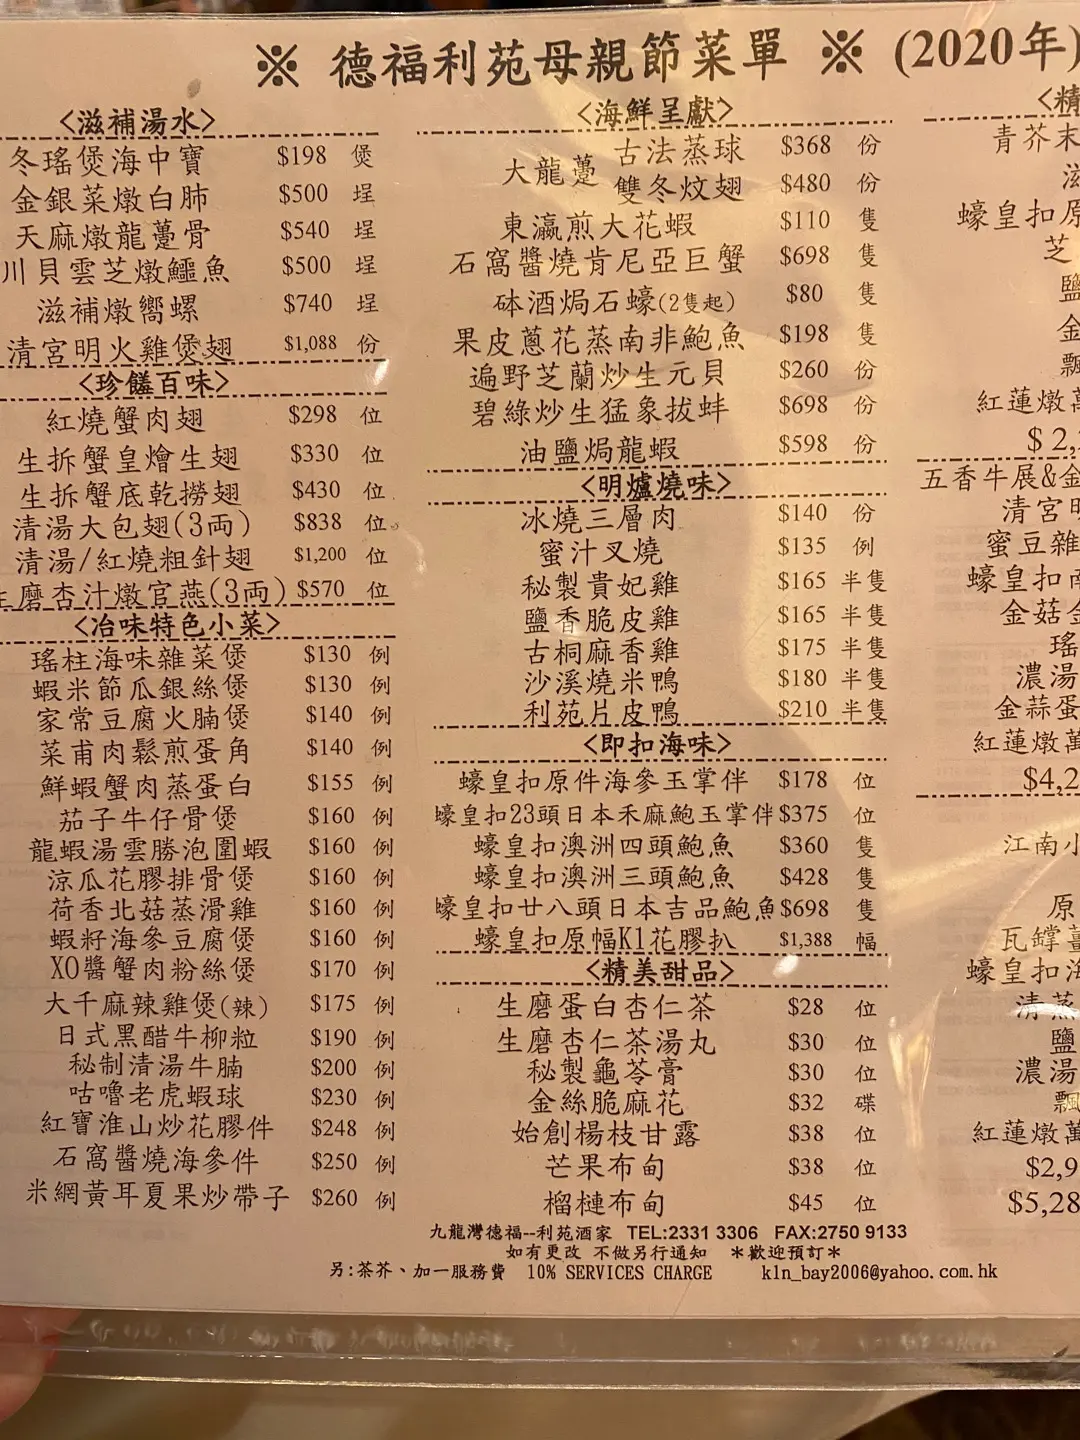 ※ 德福利苑母親節菜單 ※ (2020年)
<滋補湯水>
冬瑤煲海中寶 $198 煲
金銀菜燉白肺 $500 埕
天麻燉龍躉骨 $540 埕
川貝雲芝燉鱷魚 $500 埕
滋補燉嚮螺 $740 埕
清宮明火雞煲翅 $1,088 份
<珍饈百味>
紅燒蟹肉翅 $298 位
生拆蟹皇燴生翅 $330 位
生拆蟹底乾撈翅 $430 位
清湯大包翅(3両) $838 位
清湯/紅燒粗針翅 $1,200 位
生磨杏汁燉官燕(3両) $570 位
<冶味特色小菜>
瑤柱海味雜菜煲 $130 例
蝦米節瓜銀絲煲 $130 例
家常豆腐火腩煲 $140 例
菜甫肉鬆煎蛋角 $140 例
鮮蝦蟹肉蒸蛋白 $155 例
茄子牛仔骨煲 $160 例
龍蝦湯雲勝泡圍蝦 $160 例
涼瓜花膠排骨煲 $160 例
荷香北菇蒸滑雞 $160 例
蝦籽海參豆腐煲 $160 例
XO醬蟹肉粉絲煲 $170 例
大千麻辣雞煲(辣) $175 例
日式黑醋牛柳粒 $190 例
秘制清湯牛腩 $200 例
咕嚕老虎蝦球 $230 例
紅寶淮山炒花膠件 $248 例
石窩醬燒海參件 $250 例
米網黃耳夏果炒帶子 $260 例
<海鮮呈獻>
大龍躉 古法蒸球 $368 份
雙冬炆翅 $480 份
東瀛煎大花蝦 $110 隻
石窩醬燒肯尼亞巨蟹 $698 隻
砵酒焗石蠔(2隻起) $80 隻
果皮蔥花蒸南非鮑魚 $198 隻
遍野芝蘭炒生元貝 $260 份
碧綠炒生猛象拔蚌 $698 份
油鹽焗龍蝦 $598 份
<明爐燒味>
冰燒三層肉 $140 份
蜜汁叉燒 $135 例
秘製貴妃雞 $165 半隻
鹽香脆皮雞 $165 半隻
古桐麻香雞 $175 半隻
沙溪燒米鴨 $180 半隻
利苑片皮鴨 $210 半隻
<即扣海味>
蠔皇扣原件海參玉掌伴 $178 位
蠔皇扣23頭日本禾麻鮑玉掌伴 $375 位
蠔皇扣澳洲四頭鮑魚 $360 隻
蠔皇扣澳洲三頭鮑魚 $428 隻
蠔皇扣廿八頭日本吉品鮑魚 $698 隻
蠔皇扣原幅K1花膠扒 $1,388 幅
<精美甜品>
生磨蛋白杏仁茶 $28 位
生磨杏仁茶湯丸 $30 位
秘製龜苓膏 $30 位
金絲脆麻花 $32 碟
始創楊枝甘露 $38 位
芒果布甸 $38 位
榴槤布甸 $45 位
<精
青芥末
滋
蠔皇扣原
芝
鹽
金
飄
紅蓮燉萬
$2,
五香牛展&金
清宮明
蜜豆雜
蠔皇扣南
金菇金
瑤
濃湯
金蒜蛋
紅蓮燉萬
$4,2
江南小
原
瓦罉薑
蠔皇扣海
清蒸
鹽
濃湯
飄
紅蓮燉萬
$2,9
$5,28
九龍灣德福--利苑酒家 TEL:2331 3306 FAX:2750 9133
如有更改 不做另行通知 ＊歡迎預訂＊
另:茶芥、加一服務費 10% SERVICES CHARGE kln_bay2006@yahoo.com.hk